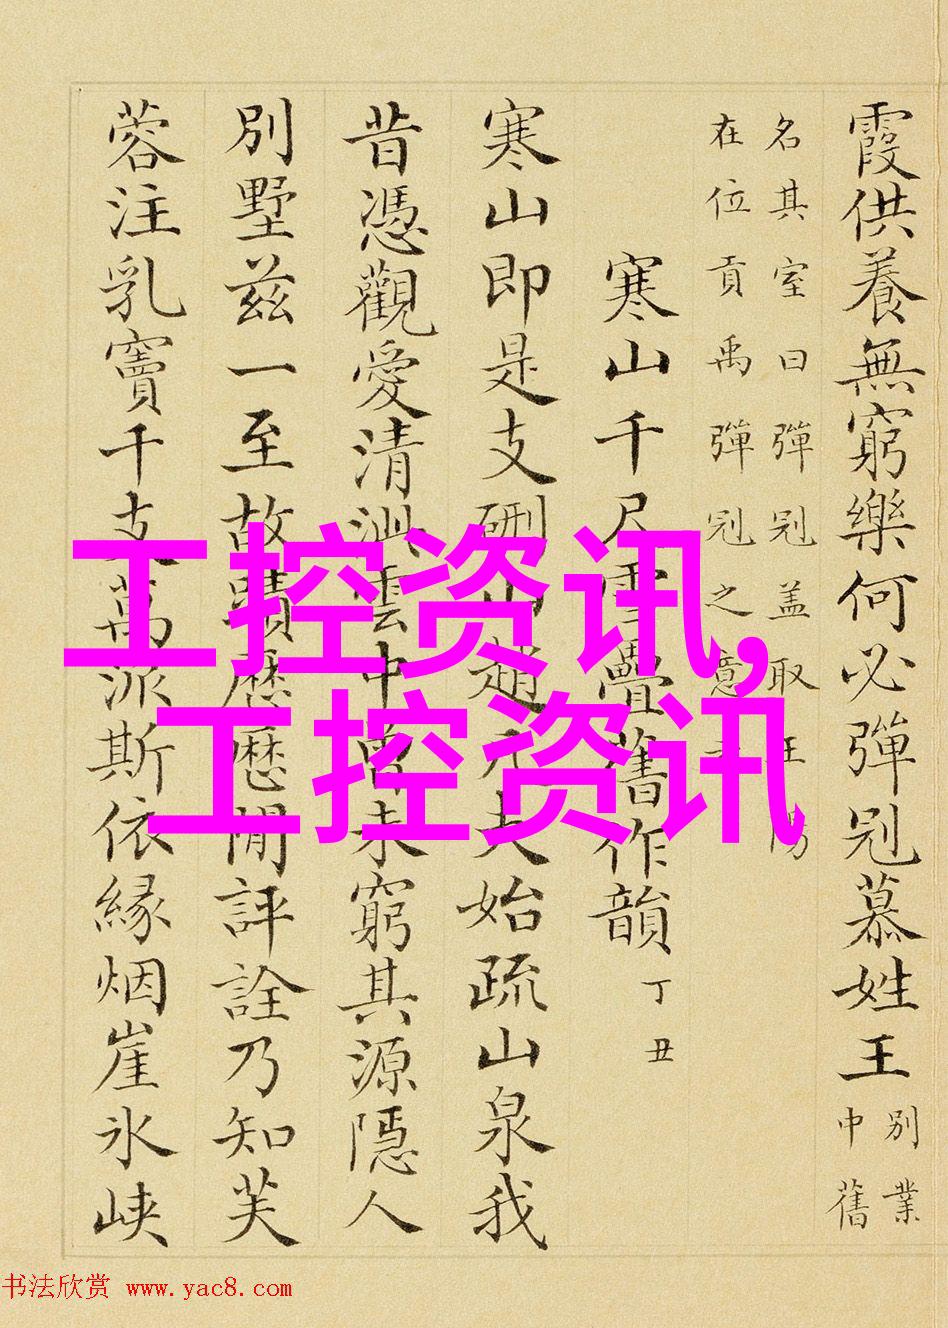 霞供養無窮樂何必彈冠慕姓王
別業
中舊
名其室曰彈冠盖取王陽
在位貢禹彈冠之意
寒山千尺雪疊舊作韻
丁丑
寒山即是支硎山趙凡夫始疏山泉我
昔憑觀愛清泚雲中曾未窮其源隱人
別墅兹一至故蹟歷歷閒評詮乃知芙
蓉注乳竇千支萬派斯依緣烟崖氷峡
工控资讯,
工控资讯
书法欣赏 www.yac8.com